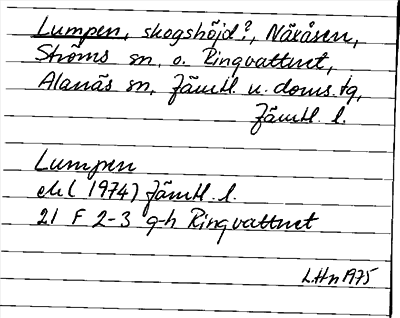 Lumpen, skogshöjd?, Näxåsen,
Ströms sn o. Ringvattnet,
Alanäs sn, Jämtl. n. doms. tg,
Jämtl. l.
Lumpen
ek ( 1974) Jämtl. l.
21 F 2-3 g-h Ringvattnet
LHn 1975